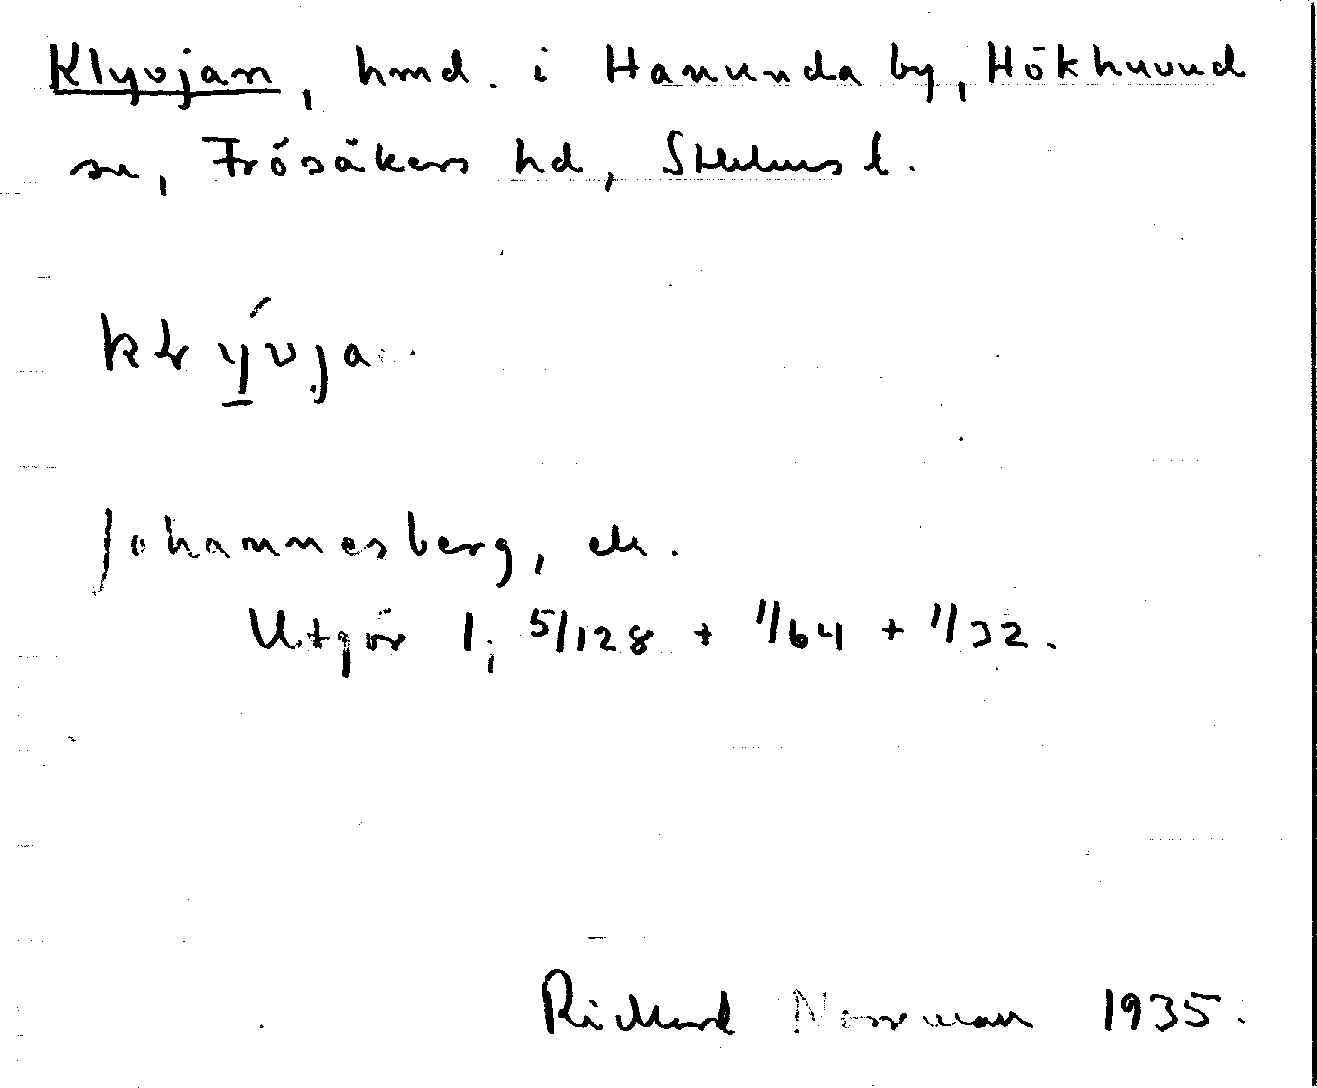 Klyvjan, hmd. i Hanunda by, Hökhuvud
sn, Frösåkers hd, Sthlms l.
klývja
Johannesberg, ek.
Utgör 1; 5/128 + 1/64 + 1/32.
Rickard Norrman 1935.